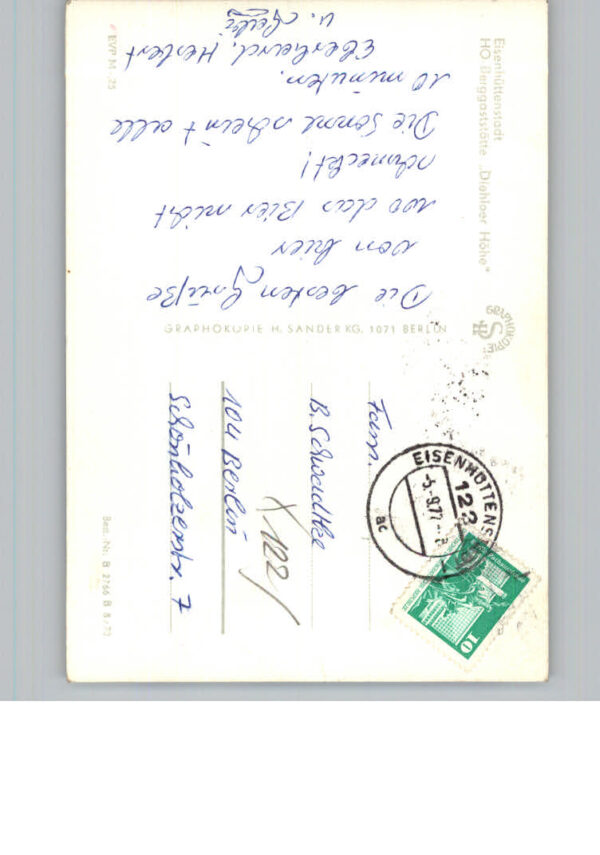 Eisenhüttenstadt
HO Berggaststätte „Diehloer Höhe"
Die besten Grüße
von hier
wo das Bier nicht
schmeckt!
Die Sonne scheint alle
10 minuten.
Eberhard, Herbert
u.
GRAPHOKOPIE H. SANDER KG. 1071 BERLIN
GRAPHOKOPIE
EISENHÜTTENS
122
-5.-9.77
ac
10
Fam.
B. Schwadtke
104 Berlin
Schönholzerstr. 7
X 122/
Best.-Nr. B 2766 B 8/72
EVP M -,25